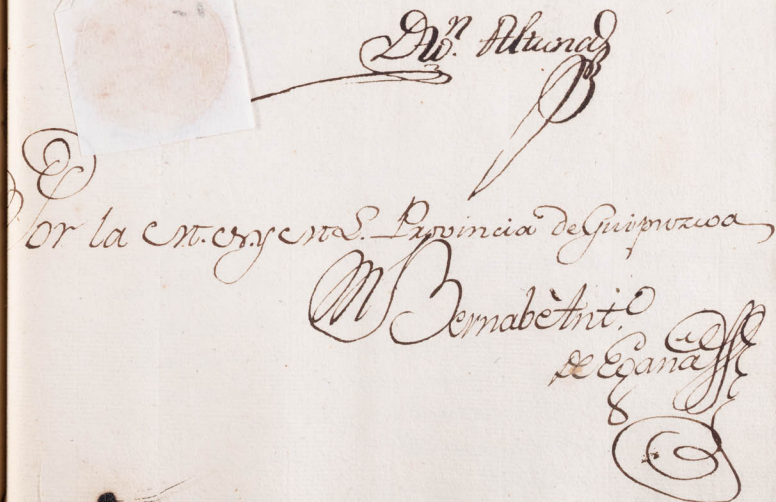 Altuna
Por la M. N. y M. L. Provincia de Guipuzcoa
Bernabè Ant.º
de Egaña